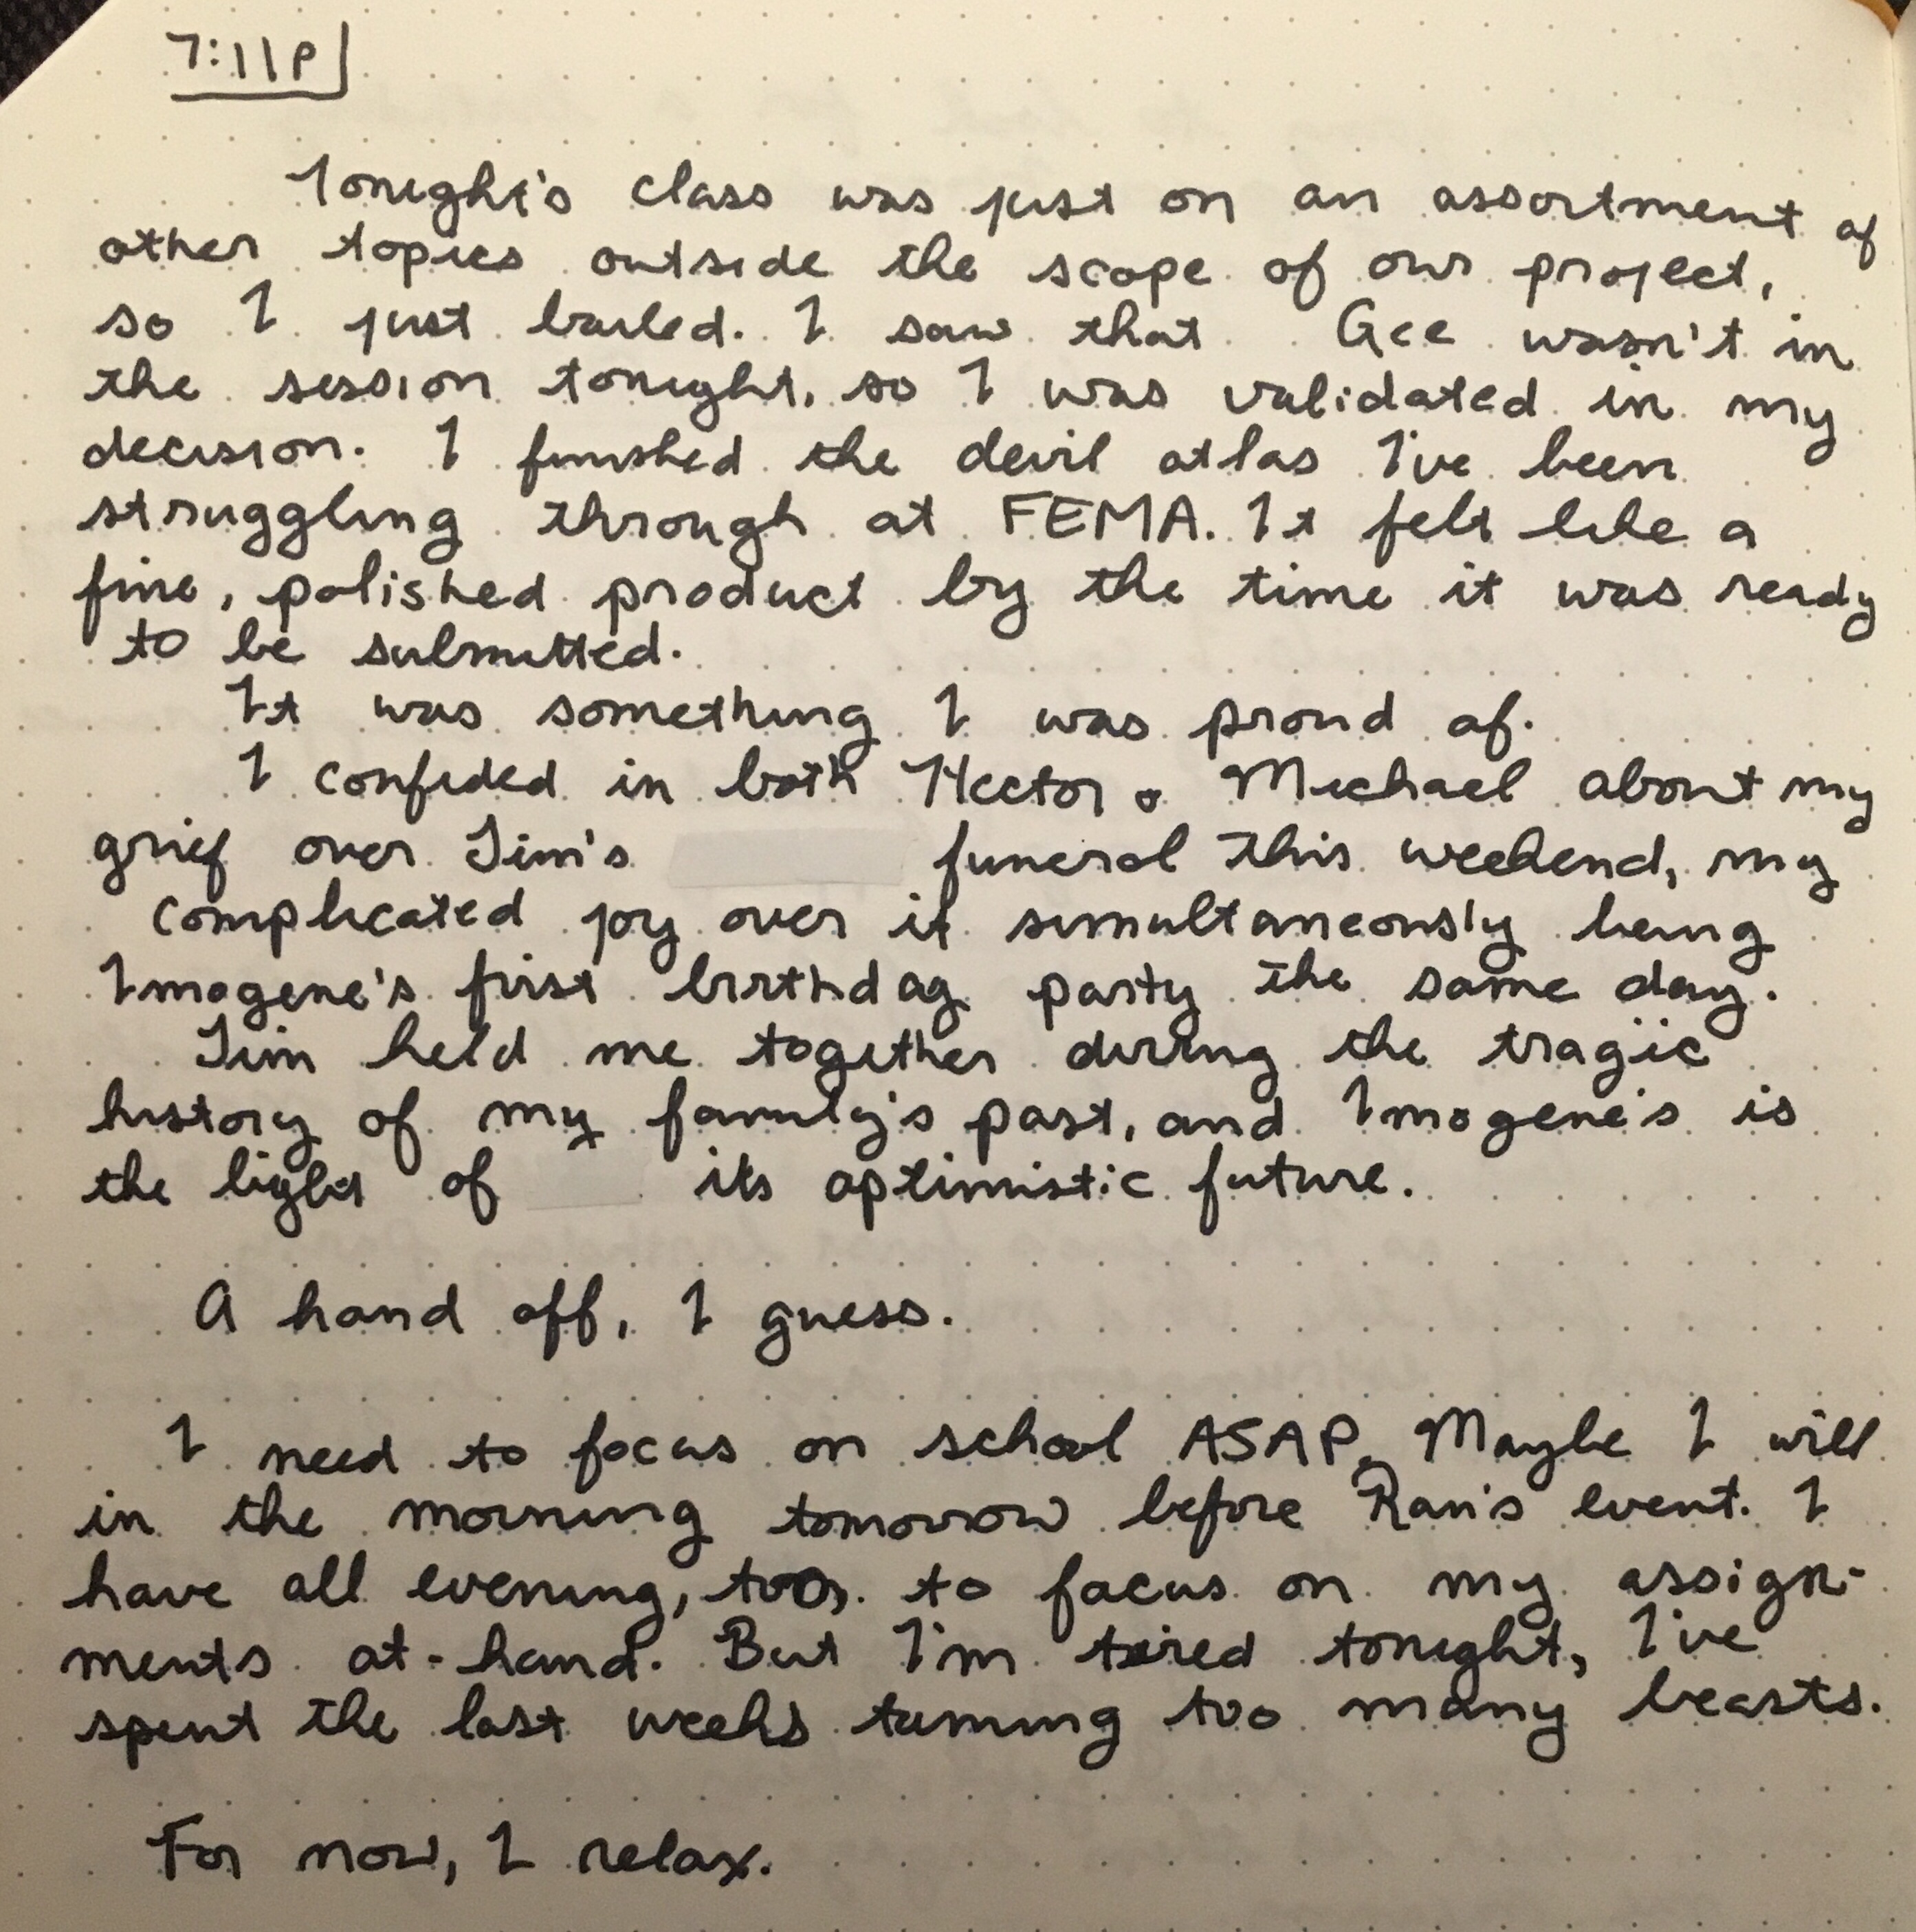 7:11P
Tonight's class was just on an assortment of
other topics outside the scope of our project,
so I just bailed. I saw that Gee wasn't in
the session tonight, so I was validated in my
decision. I finished the devil atlas I've been
struggling through at FEMA. It felt like a
fine, polished product by the time it was ready
to be submitted.
It was something I was proud of.
I confided in both Hector & Michael about my
grief over Jim's funeral this weekend, my
complicated joy over it simultaneously being
Imogene's first birthday party the same day.
Jim held me together during the tragic
history of my family's past, and Imogene's is
the light of its optimistic future.
A hand off, I guess.
I need to focus on school ASAP. Maybe I will
in the morning tomorrow before Ran's event. I
have all evening, too, to focus on my assign-
ments at-hand. But I'm tired tonight, I've
spent the last weeks taming too many beasts.
For now, I relax.